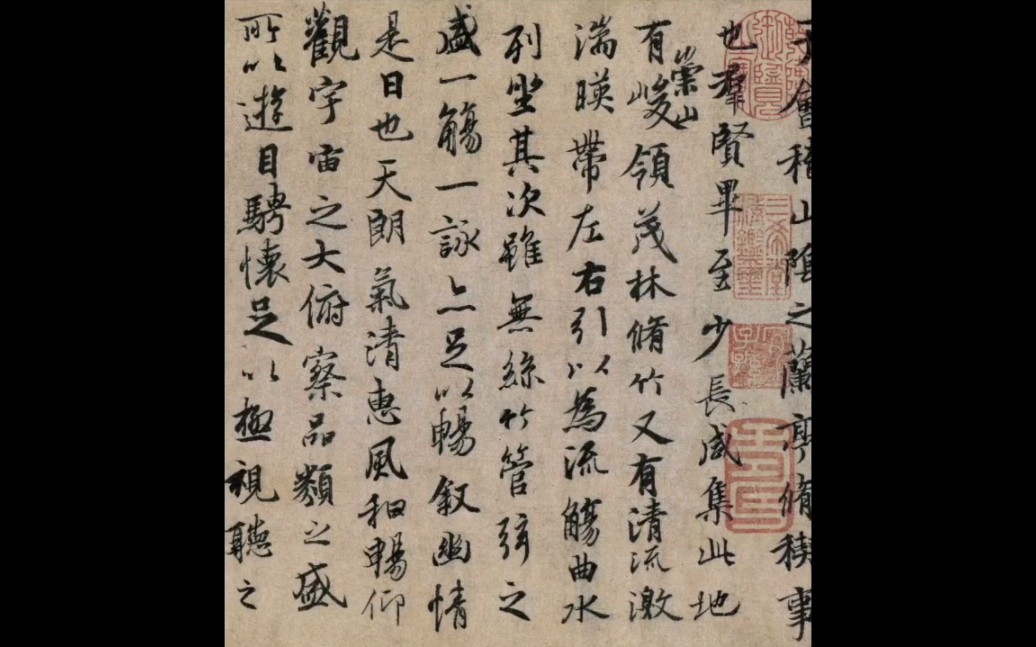 于會稽山陰之蘭亭脩稧事
也羣賢畢至少長咸集此地
有崇山峻領茂林脩竹又有清流激
湍暎帶左右引以為流觴曲水
列坐其次雖無絲竹管弦之
盛一觴一詠亦足以暢敘幽情
是日也天朗氣清惠風和暢仰
觀宇宙之大俯察品類之盛
所以遊目騁懷足以極視聽之